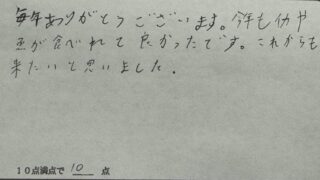 毎年ありがとうございます。今年も肉や
魚が食べれて良かったです。これからも
来たいと思いました。
10点満点で 10 点